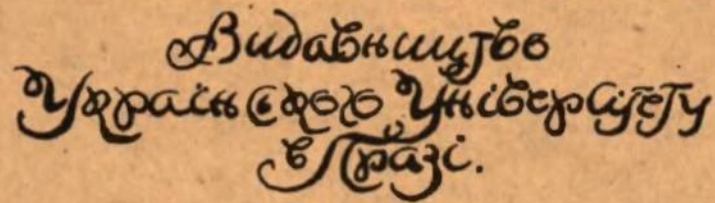 Видавництво
Українського Університету
в Празі.